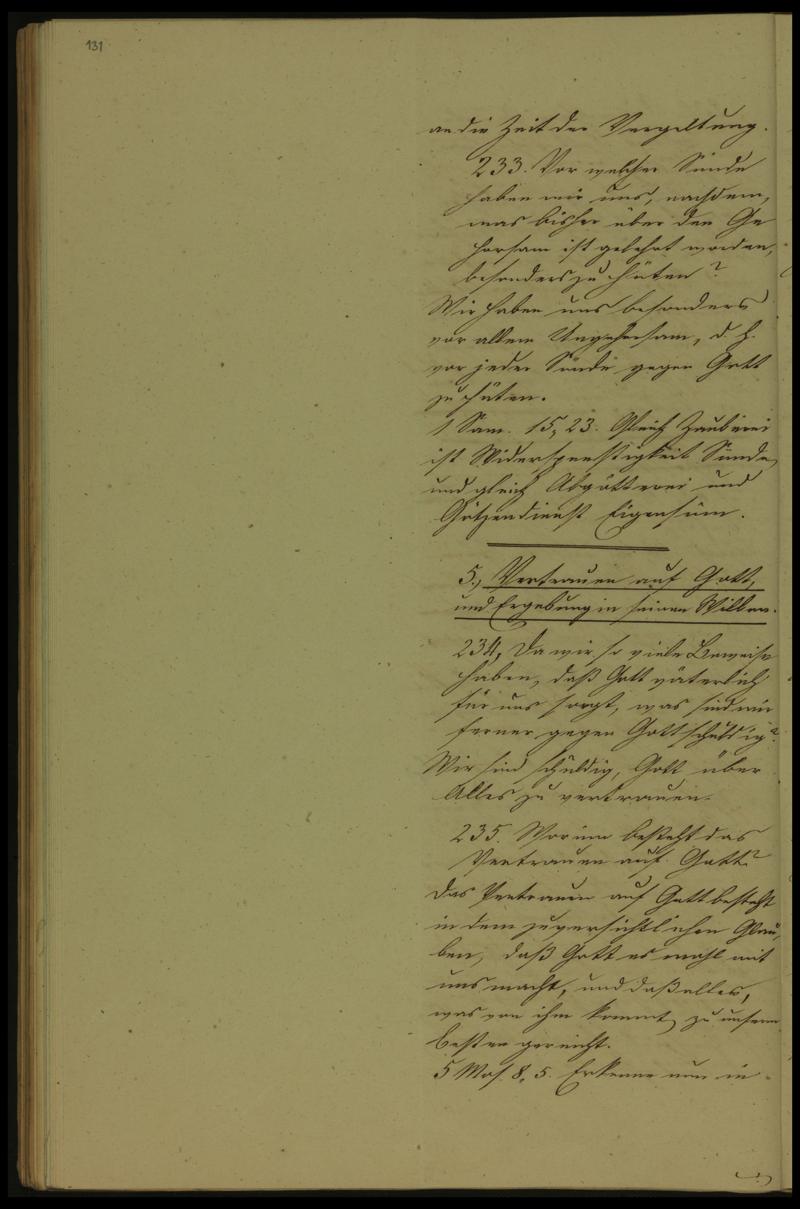 131
an die Zeit der Vergeltung.
233. Vor welcher Sünde
haben wir uns, nachdem,
was bisher über den Ge
horsam ist gelehrt worden,
besonders zu hüten?
Wir haben uns besonders
vor allem Ungehorsam, d. h.
vor jeder Sünde gegen Gott
zu hüten.
1 Sam. 15, 23. Gleich Zauberei
ist Widerspenstigkeit Sünde,
und gleich Abgötterei und
Götzendienst Eigensinn.
5., Vertrauen auf Gott,
und Ergebung in seinen Willen.
234, Da wir so viele Beweise
haben, daß Gott väterlich
für uns sorgt, was sind wir
ferner gegen Gott schuldig?
Wir sind schuldig, Gott über
Alles zu vertrauen.
235. Worinn besteht das
Vertrauen auf Gott?
Das Vertrauen auf Gott besteht
in dem zuversichtlichen Glau,
ben, daß Gott es wohl mit
uns macht, und daß alles,
was von ihm kommt, zu unserm
besten gereicht.
5 Mos. 8, 5. Erkenne nun in